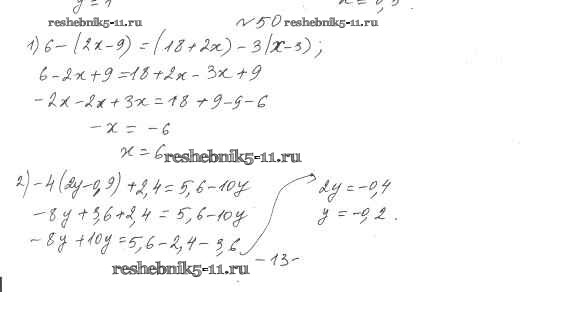 y = 1
reshebnik5-11.ru
№50 reshebnik5-11.ru
1) 6-(2x-9)=(18+2x)-3(x-3);
6-2x+9=18+2x-3x+9
-2x-2x+3x=18+9-9-6
-x = -6
x = 6 reshebnik5-11.ru
2) -4(2y-0,9)+2,4=5,6-10y
-8y+3,6+2,4=5,6-10y
-8y+10y=5,6-2,4-3,6
2y=-0,4
y=-0,2.
reshebnik5-11.ru
-13-